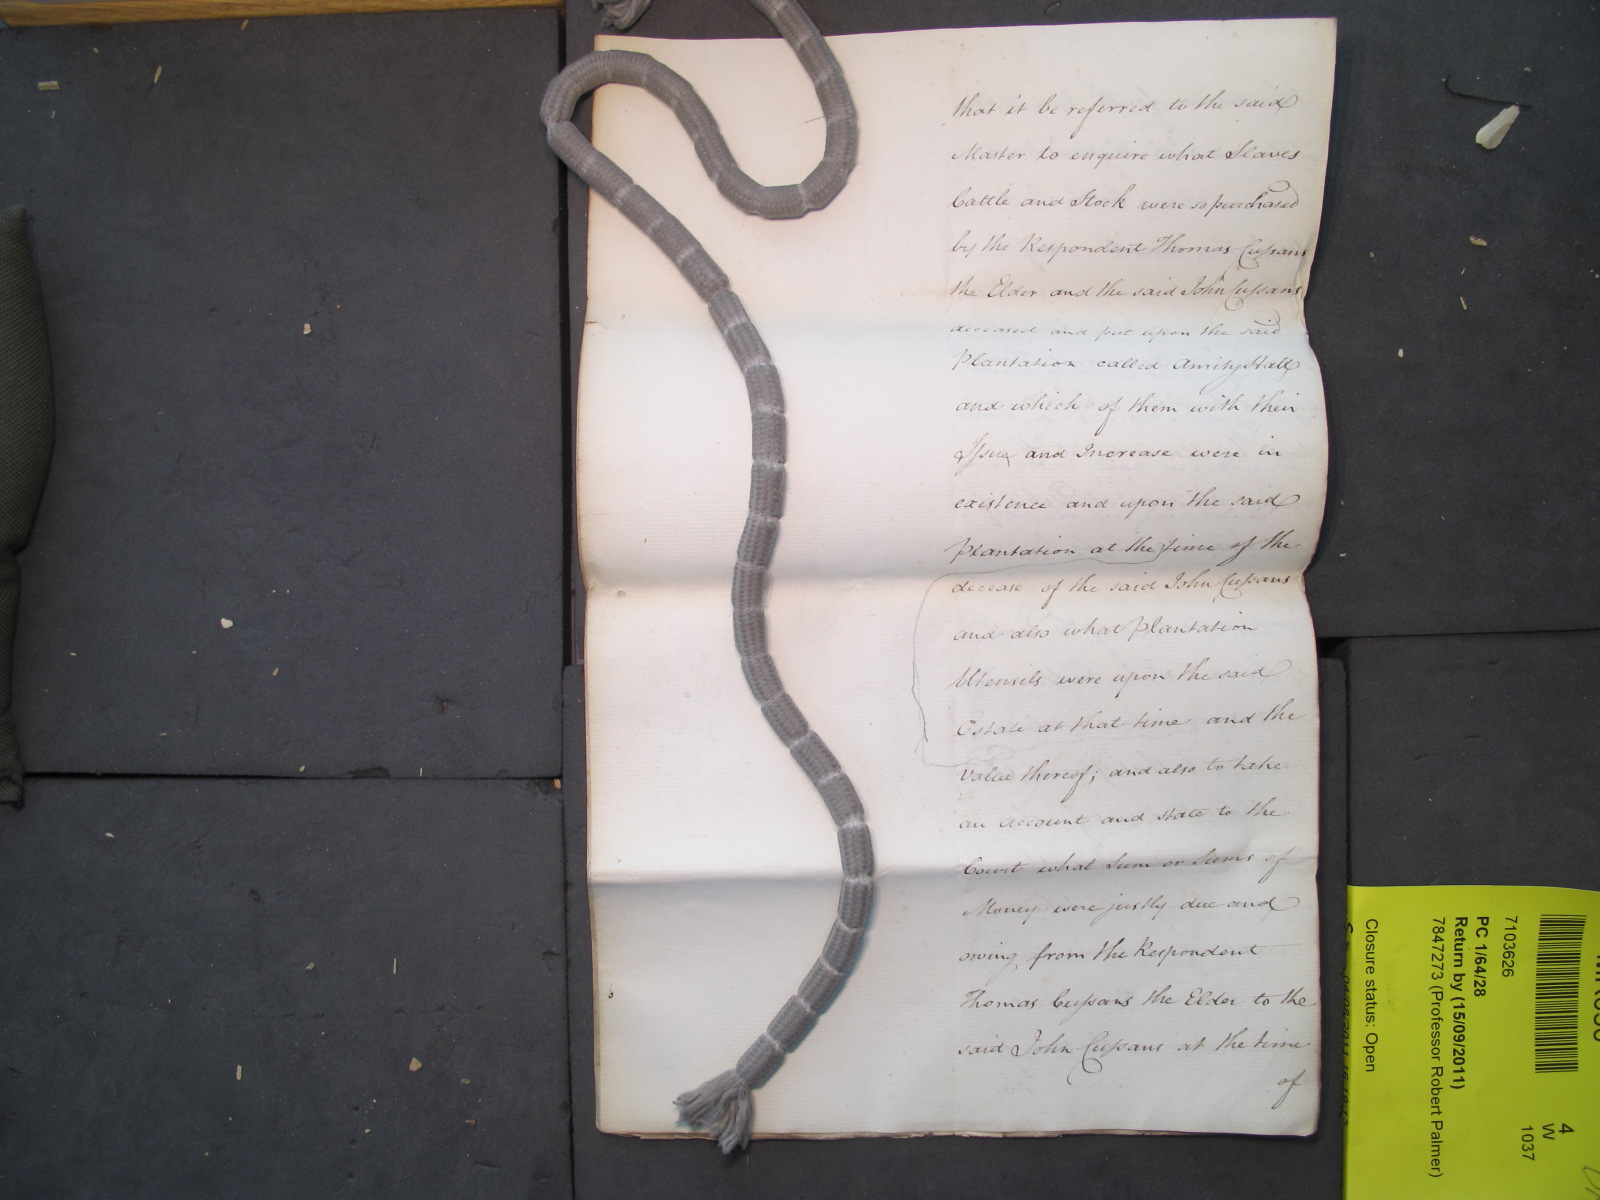 that it be referred to the said
Master to enquire what Slaves
Cattle and Stock were so purchased
by the Respondent Thomas Cussans
the Elder and the said John Cussans
deceased and put upon the said
Plantation called Amity Hall
and which of them with their
Issue and Increase were in
existence and upon the said
Plantation at the time of the
decease of the said John Cussans
and also what Plantation
Utensils were upon the said
Estate at that time and the
value thereof; and also to take
an account and state to the
Court what Sum or Sums of
Money were justly due and
owing from the Respondent
Thomas Cussans the Elder to the
said John Cussans at the time
of
7103626
PC 1/64/28
Return by (15/09/2011)
7847273 (Professor Robert Palmer)
Closure status: Open
4
W
1037